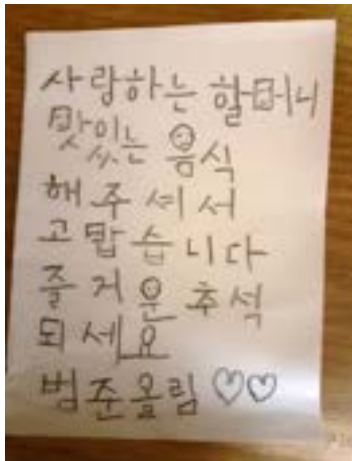 사랑하는 할머니
맛있는 음식
해주셔서
고맙습니다
즐거운 추석
되세요
범준올림♡♡